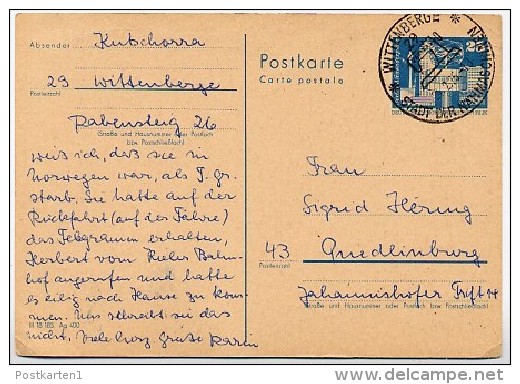 Absender
Kutschorra
29 Wittenberge
Postleitzahl
Rabensteig 26
(Straße und Hausnummer oder Postfach
bzw. Postschließfach)
weiß ich, daß sie in
Norwegen war, als T. gr.
starb. Sie hatte auf der
Rückfahrt (auf der Fähre)
das Telegramm erhalten,
Herbert vom Kieler Bahn-
hof angerufen und hatte
es eilig nach Hause zu kom-
men. Uns schreibt sie das
nicht. Viele herzl. Grüße Karin
III 18 185 Ag 400
Postkarte
Carte postale
WITTENBERGE
STADT DER NÄHMASCHINEN
Frau
Sigrid Hering
43 Quedlinburg
Postleitzahl
Johannishofer Trift 14
Straße und Hausnummer oder Postfach bzw. Postschließfach
Postkarten1
delcampe.net